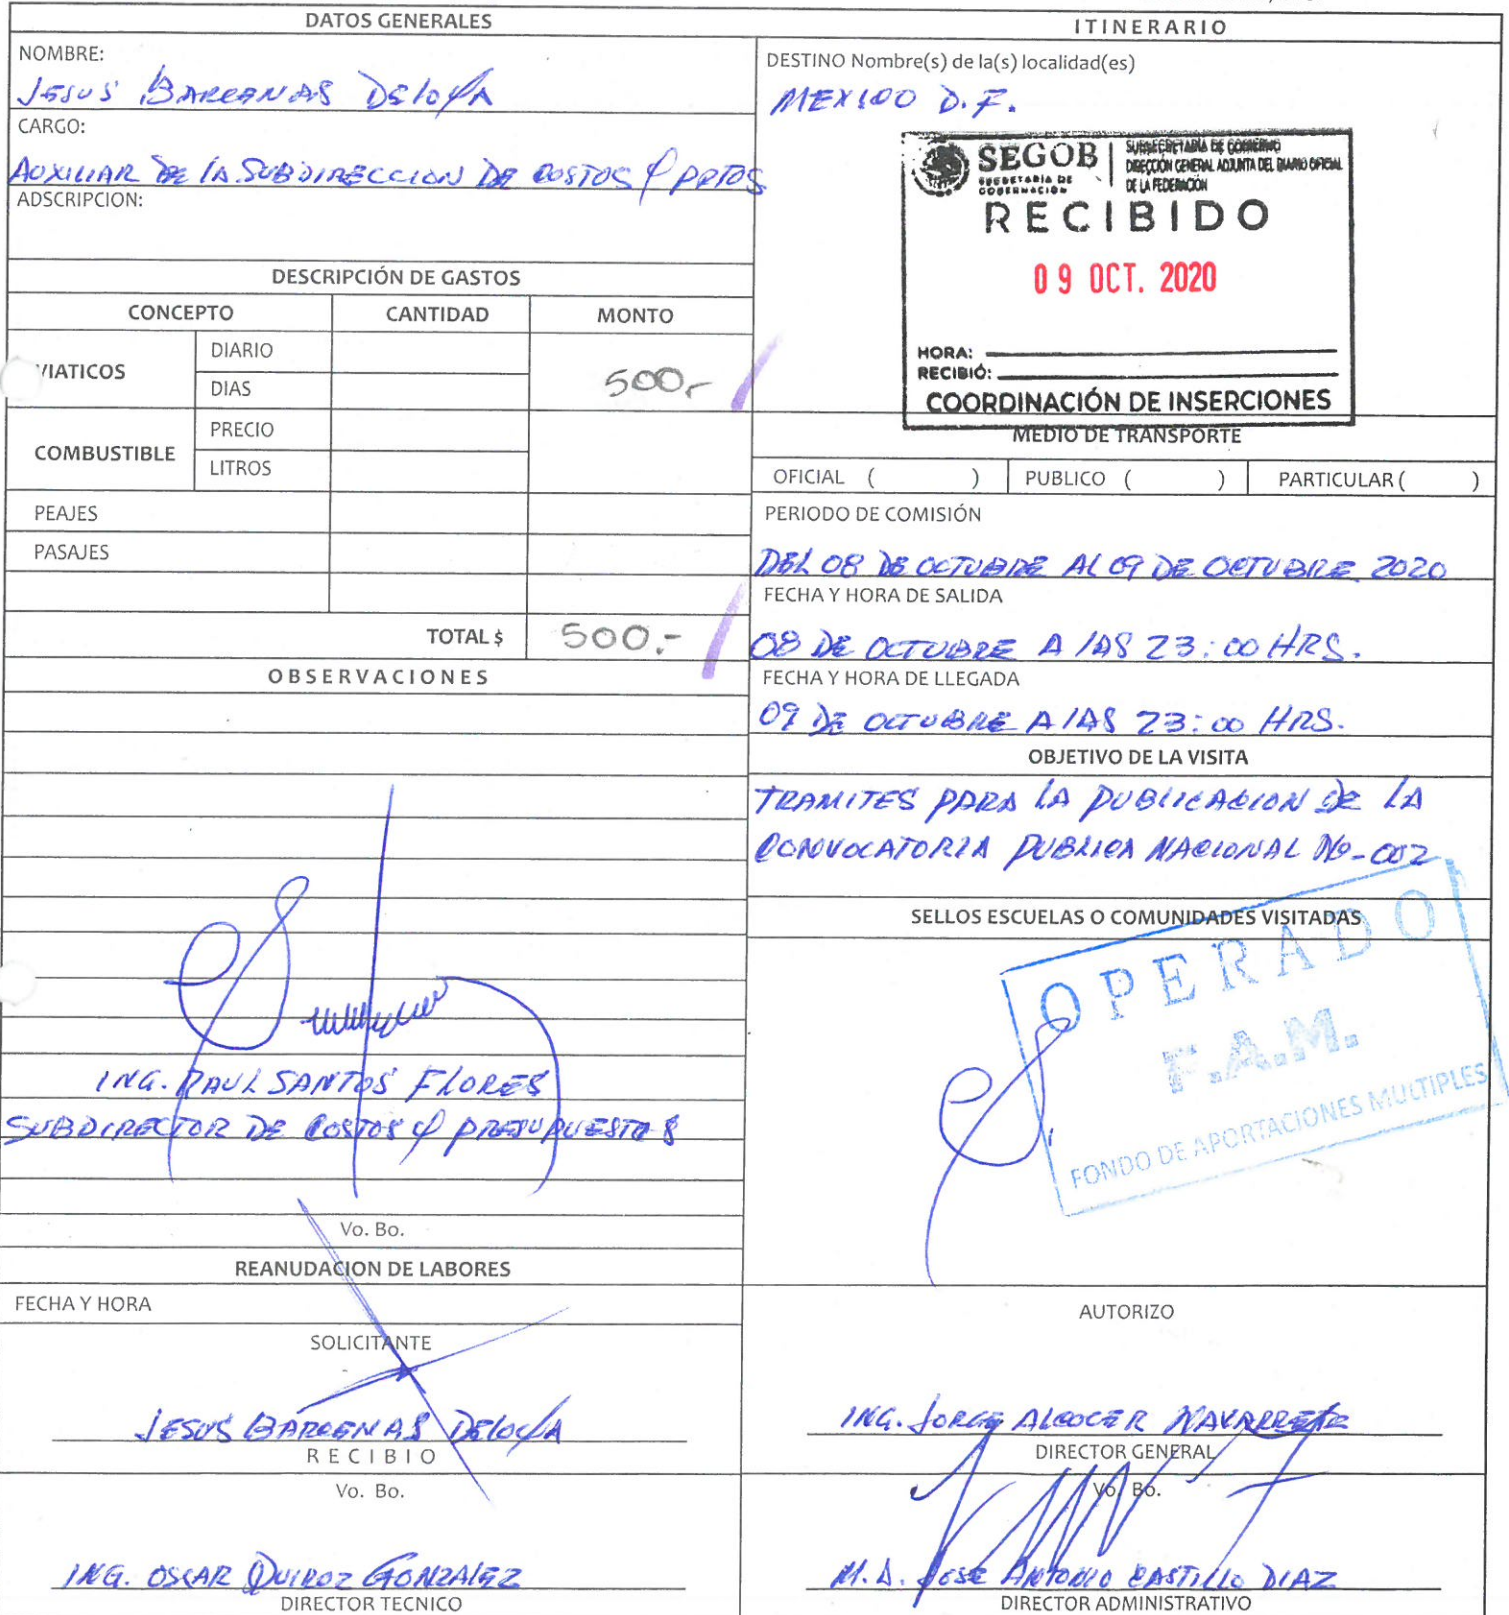 DATOS GENERALES
NOMBRE:
JESUS BARCENAS DELOYA
CARGO:
AUXILIAR DE LA SUBDIRECCION DE COSTOS Y PPTOS
ADSCRIPCION:
DESCRIPCIÓN DE GASTOS
CONCEPTO CANTIDAD MONTO
VIATICOS
DIARIO
DIAS
500.-
COMBUSTIBLE
PRECIO
LITROS
PEAJES
PASAJES
TOTAL $ 500.-
OBSERVACIONES
ING. RAUL SANTOS FLORES
SUBDIRECTOR DE COSTOS Y PRESUPUESTOS
Vo. Bo.
REANUDACION DE LABORES
FECHA Y HORA
SOLICITANTE
JESUS BARCENAS DELOYA
RECIBIO
Vo. Bo.
ING. OSCAR QUIROZ GONZALEZ
DIRECTOR TECNICO
ITINERARIO
DESTINO Nombre(s) de la(s) localidad(es)
MEXICO D.F.
SEGOB
SECRETARÍA DE
GOBERNACIÓN
SUBSECRETARÍA DE GOBIERNO
DIRECCIÓN GENERAL ADJUNTA DEL DIARIO OFICIAL
DE LA FEDERACIÓN
RECIBIDO
09 OCT. 2020
HORA:
RECIBIÓ:
COORDINACIÓN DE INSERCIONES
MEDIO DE TRANSPORTE
OFICIAL ( ) PUBLICO ( ) PARTICULAR ( )
PERIODO DE COMISIÓN
DEL 08 DE OCTUBRE AL 09 DE OCTUBRE 2020
FECHA Y HORA DE SALIDA
08 DE OCTUBRE A LAS 23:00 HRS.
FECHA Y HORA DE LLEGADA
09 DE OCTUBRE A LAS 23:00 HRS.
OBJETIVO DE LA VISITA
TRAMITES PARA LA PUBLICACION DE LA
CONVOCATORIA PUBLICA NACIONAL No-002
SELLOS ESCUELAS O COMUNIDADES VISITADAS
OPERADO
F.A.M.
FONDO DE APORTACIONES MULTIPLES
AUTORIZO
ING. JORGE ALCOCER NAVARRETE
DIRECTOR GENERAL
Vo. Bo.
M.A. JOSE ANTONIO CASTILLO DIAZ
DIRECTOR ADMINISTRATIVO